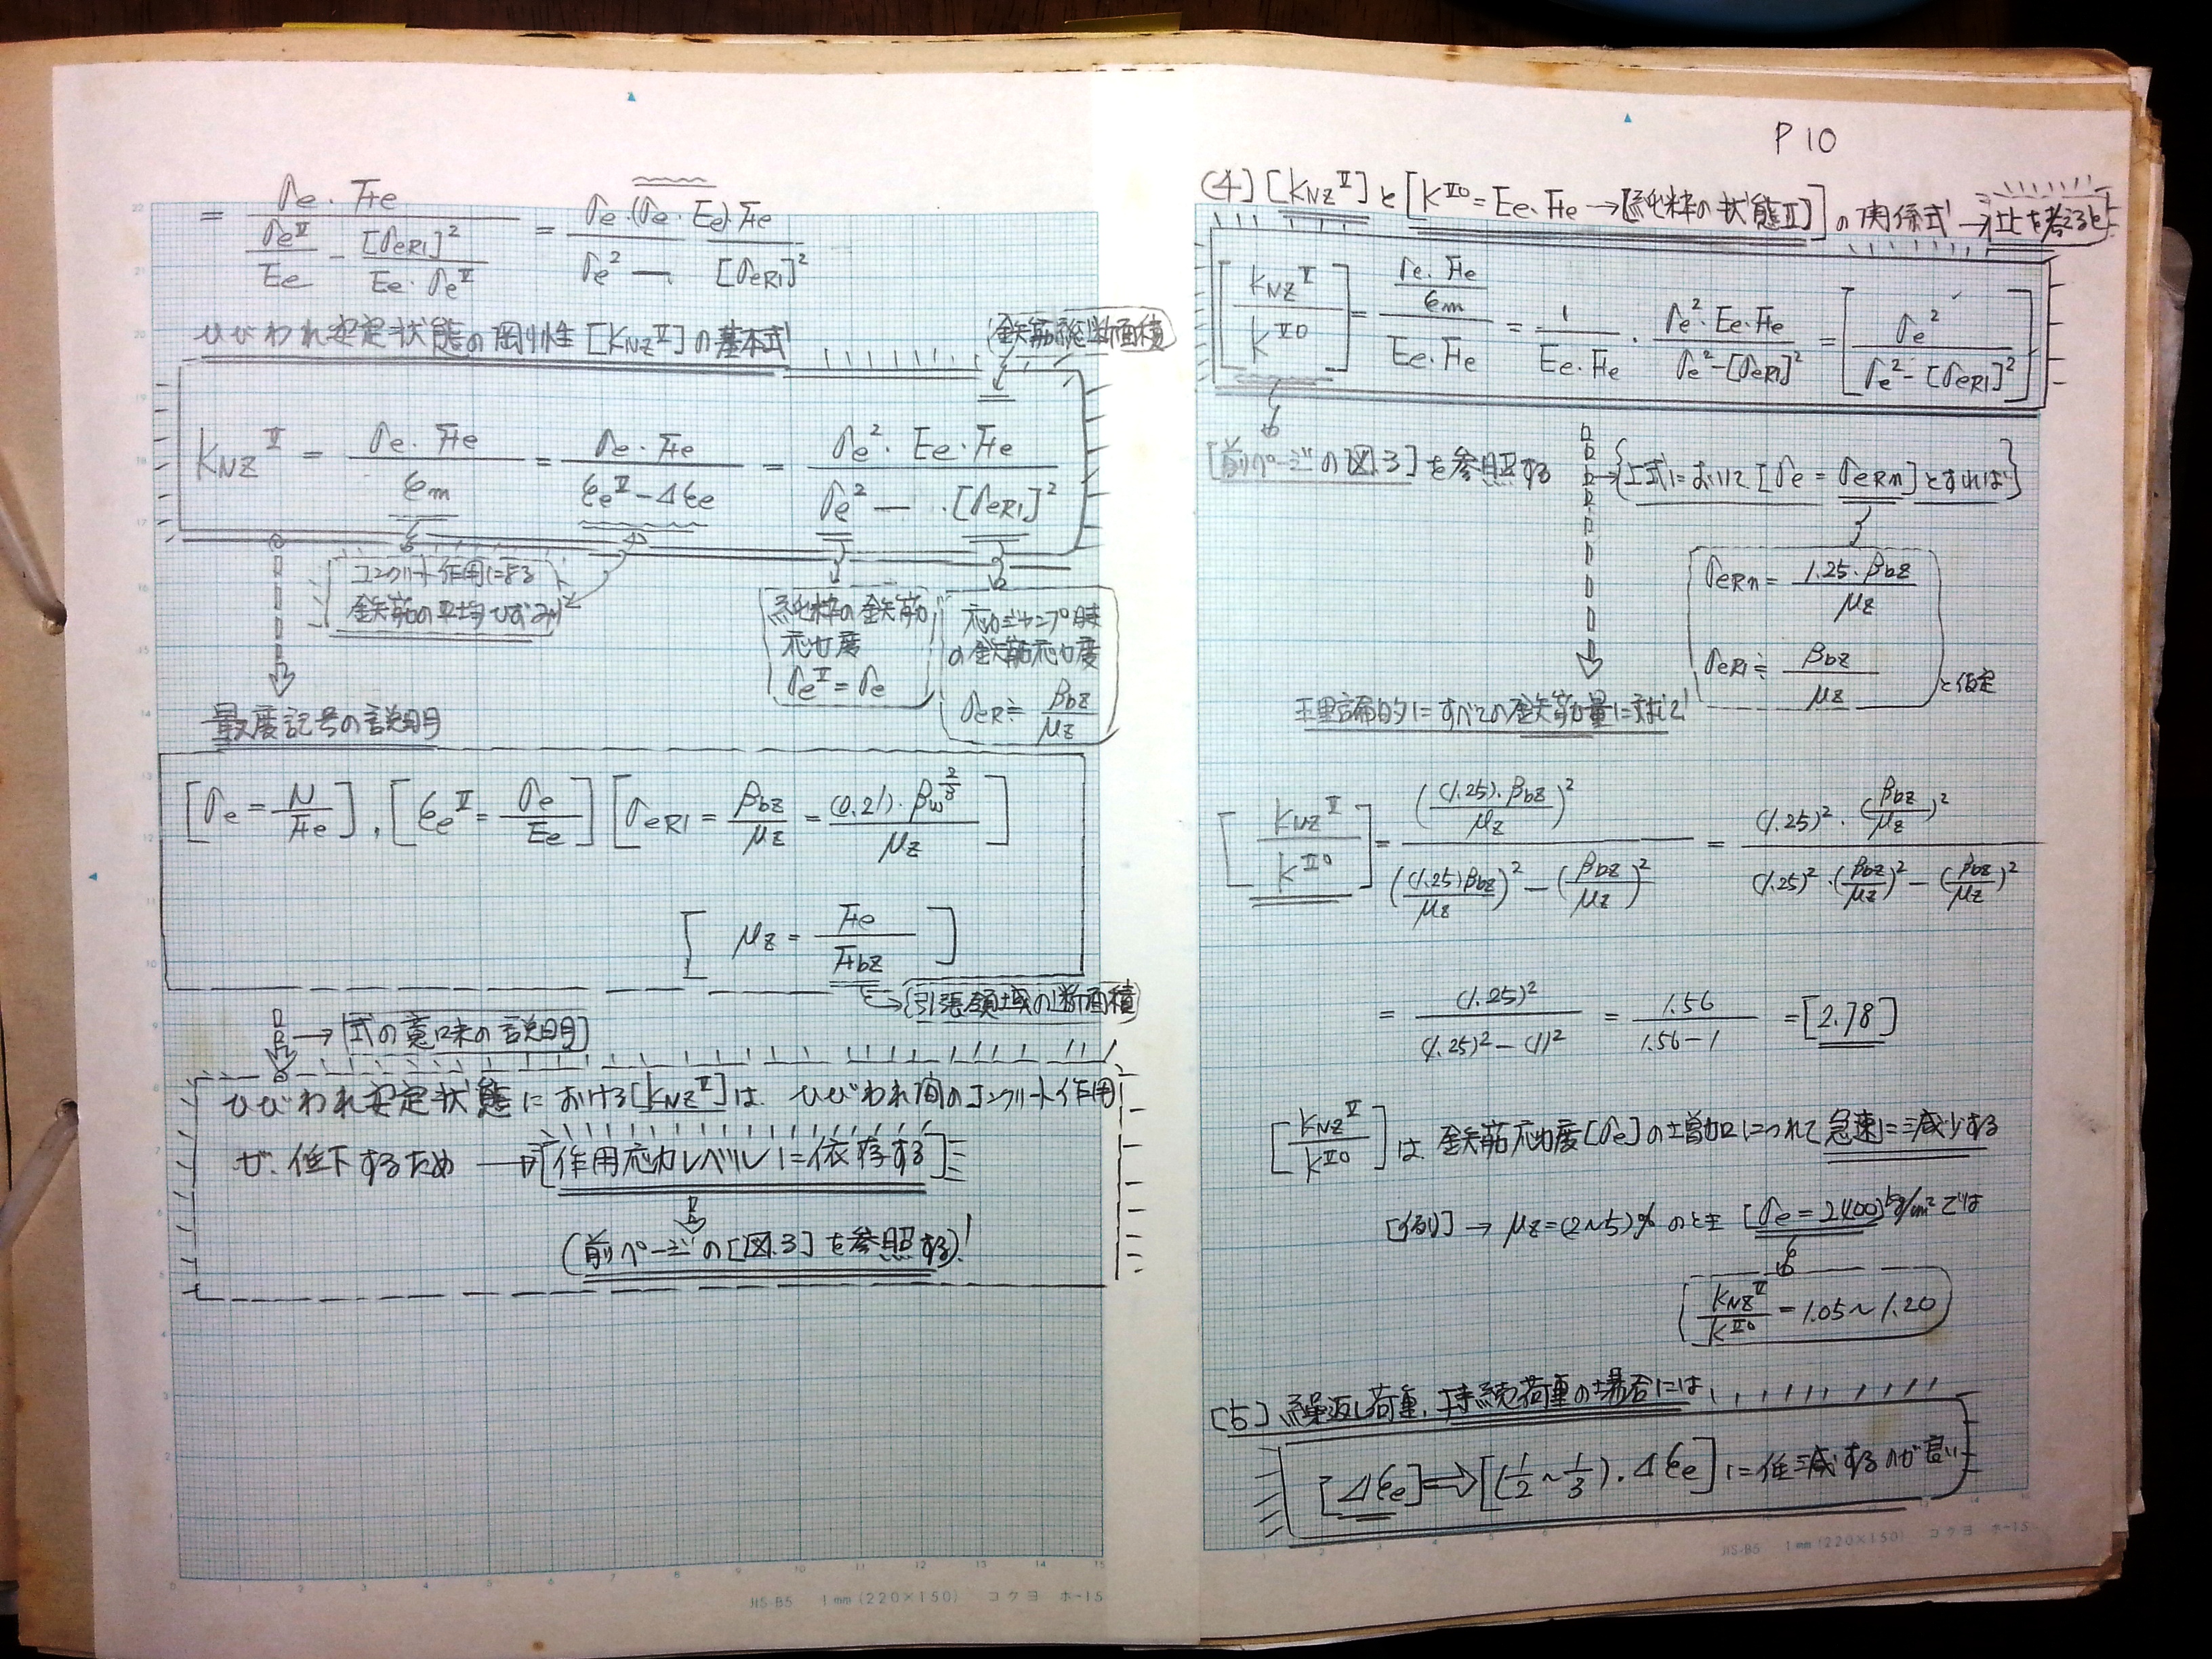 = σe・Fe / (σeⅡ/Ee − [σeR1]²/(Ee・σeⅡ)) = σe・(σe・Ee)・Fe / (σe² − [σeR1]²)
ひびわれ安定状態の剛性[KNZⅡ]の基本式
(鉄筋総断面積)
KNZⅡ = σe・Fe / εm = σe・Fe / (εeⅡ−Δεe) = σe²・Ee・Fe / (σe² − [σeR1]²)
コンクリート作用による
鉄筋の平均ひずみ
純粋の鉄筋
応力度
σeⅡ = σe
応力ジャンプ時
の鉄筋応力度
σeR ≒ βbz/μz
記号の説明
[σe = N/Fe], [εeⅡ = σe/Ee] [σeR1 = βbz/μz = (0.21)・βw^(2/3) / μz]
[μz = Fe/Fbz]
→(引張領域の断面積)
→[式の意味の説明]
ひびわれ安定状態における[KNZⅡ]は、ひびわれ間のコンクリート作用
が、低下するため →[作用応力レベルに依存する]
(前ページの[図.3]を参照する)!
P10
(4) [KNZⅡ]と[KⅡ0 = Ee・Fe →[純粋の状態Ⅱ]]の関係式 →比を考えると!
[KNZⅡ/KⅡ0] = (σe・Fe/εm) / (Ee・Fe) = 1/(Ee・Fe)・σe²・Ee・Fe / (σe²−[σeR1]²) = [σe² / (σe²−[σeR1]²)]
[前ページの図.3]を参照する
→{上式において[σe = σeRn]とすれば}
σeRn = 1.25・βbz / μz
σeR1 ≒ βbz / μz
と仮定
理論的にすべての鉄筋量に対して!
[KNZⅡ/KⅡ0] = ((1.25)・βbz/μz)² / (((1.25)βbz/μz)² − (βbz/μz)²) = (1.25)²・(βbz/μz)² / ((1.25)²・(βbz/μz)² − (βbz/μz)²)
= (1.25)² / ((1.25)² − (1)²) = 1.56 / (1.56−1) = [2.78]
[KNZⅡ/KⅡ0]は、鉄筋応力度[σe]の増加につれて急速に減少する
[例] → μz = (2〜5)% のとき [σe = 2400]kg/cm² では
KNZⅡ/KⅡ0 = 1.05〜1.20
[5] 繰返し荷重、持続荷重の場合には、
[Δεe]⇒[(1/2〜1/3)・Δεe]に低減するのが良い
JIS-B5 1mm(220×150) コクヨ ホ-15
JIS-B5 1mm(220×150) コクヨ ホ-15